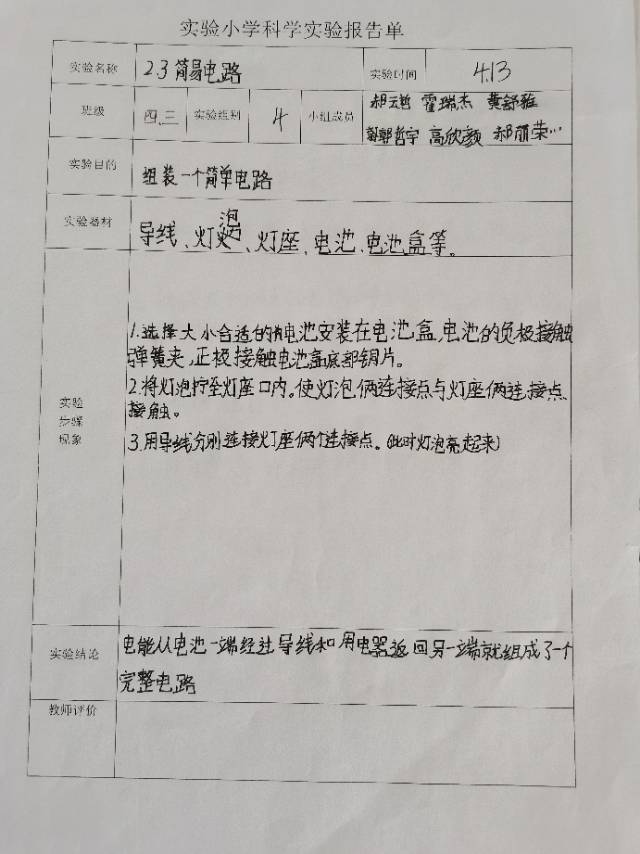 实验小学科学实验报告单
实验名称 2.3简易电路 实验时间 4.13
班级 四.三 实验组别 4 小组成员 郝云哲 霍瑞杰 黄舒雅
郭哲宇 高欣颜 郝丽荣…
实验目的 组装一个简单电路
实验器材 导线、灯泡、灯座、电池、电池盒等。
1.选择大小合适的电池安装在电池盒,电池的负极接触
弹簧夹,正极接触电池盒底部铜片。
2.将灯泡拧至灯座口内。使灯泡俩连接点与灯座俩连接点
接触。
3.用导线分别连接灯座俩个连接点。(此时灯泡亮起来)
实验
步骤
现象
实验结论 电能从电池一端经过导线和用电器返回另一端就组成了一个
完整电路
教师评价